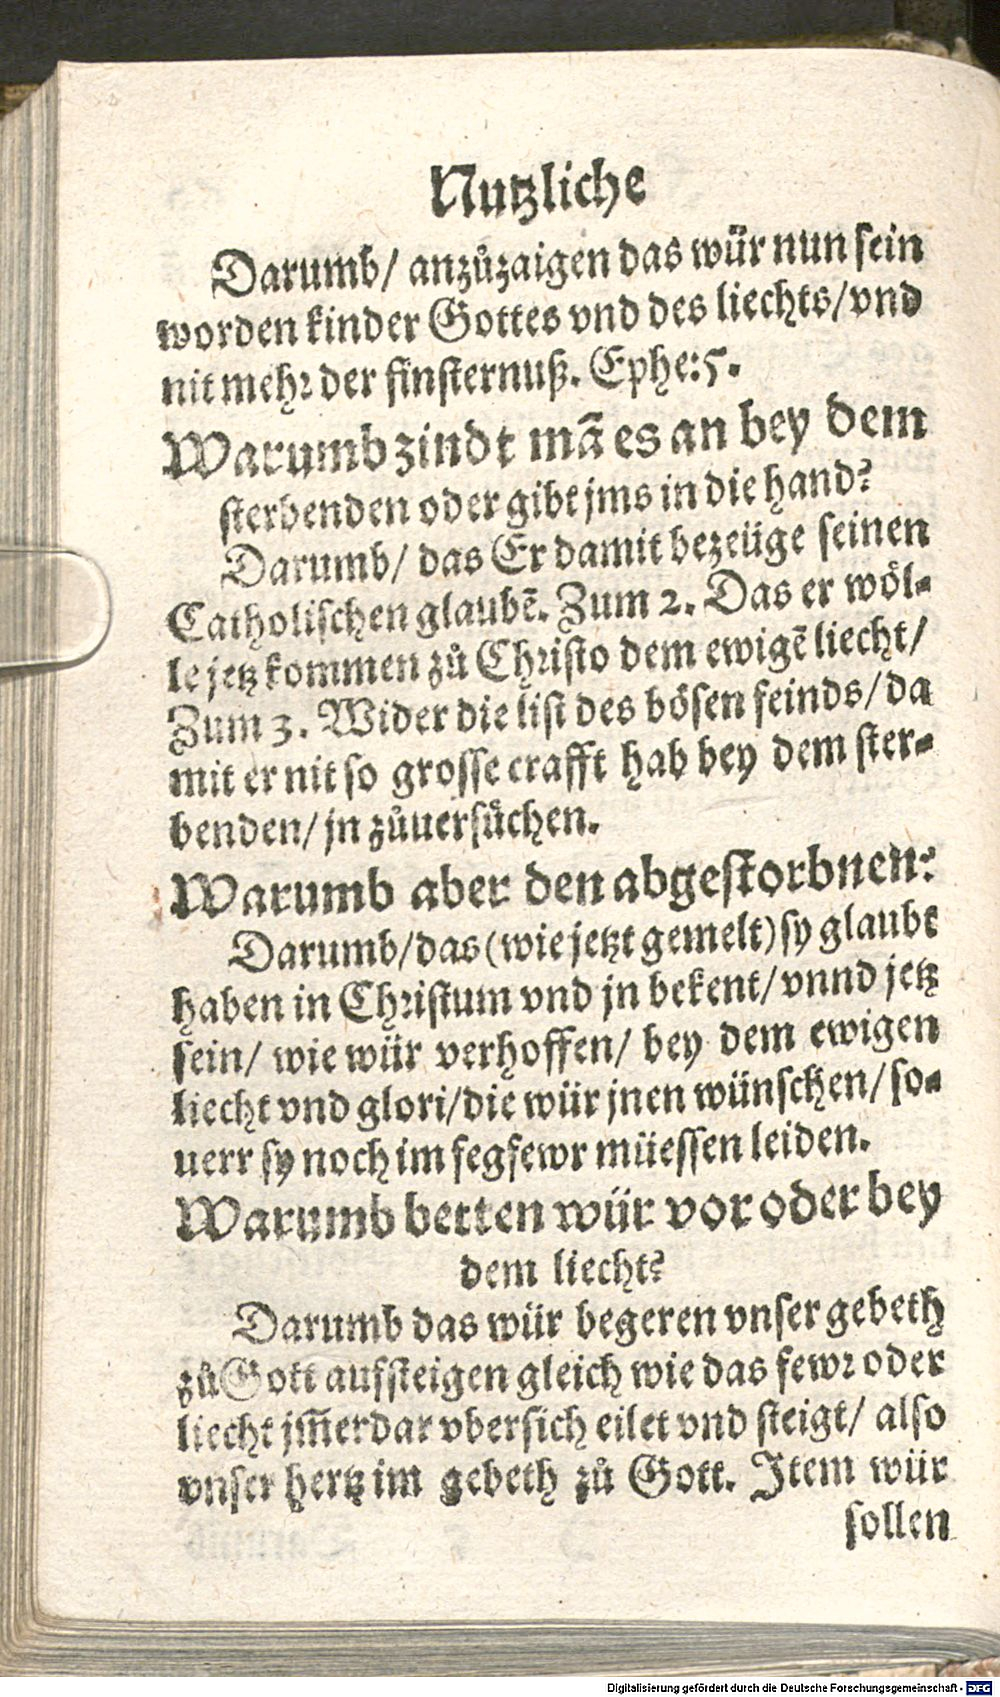 Nutzliche
Darumb/ anzůzaigen das wür nun sein
worden kinder Gottes vnd des liechts/vnd
nit mehr der finsternuß. Ephe:5.
Warumb zindt mā es an bey dem
sterbenden oder gibt jms in die hand?
Darumb/ das Er damit bezeüge seinen
Catholischen glaubē. Zum 2. Das er wöl-
le jetz kommen zů Christo dem ewigē liecht/
Zum 3. Wider die list des bösen feinds/da
mit er nit so grosse crafft hab bey dem ster-
benden/ jn zůuersůchen.
Warumb aber den abgestorbnen?
Darumb/das (wie jetzt gemelt) sy glaubt
haben in Christum vnd jn bekent/vnnd jetz
sein/ wie wür verhoffen/ bey dem ewigen
liecht vnd glori/die wür jnen wünschen/ so-
uerr sy noch im fegfewr müessen leiden.
Warumb betten wür vor oder bey
dem liecht?
Darumb das wür begeren vnser gebeth
zů Gott aufsteigen gleich wie das fewr oder
liecht jm̄erdar vbersich eilet vnd steigt/ also
vnser hertz im gebeth zů Gott. Item wür
sollen
Digitalisierung gefördert durch die Deutsche Forschungsgemeinschaft - DFG